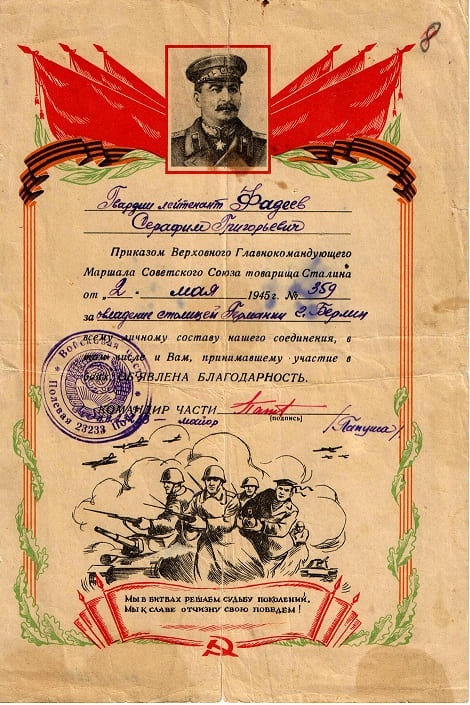 8
Гвардии лейтенант Фадеев
Серафим Григорьевич
Приказом Верховного Главнокомандующего
Маршала Советского Союза товарища Сталина
от „2“ мая 1945 г. № 359
за овладение столицей Германии г. Берлин
всему личному составу нашего соединения, в
том числе и Вам, принимавшему участие в
боях, ОБЪЯВЛЕНА БЛАГОДАРНОСТЬ.
КОМАНДИР ЧАСТИ
майор
(подпись)
Войсковая часть
Полевая почта
23233
МЫ В БИТВАХ РЕШАЕМ СУДЬБУ ПОКОЛЕНИЙ,
МЫ К СЛАВЕ ОТЧИЗНУ СВОЮ ПОВЕДЕМ!